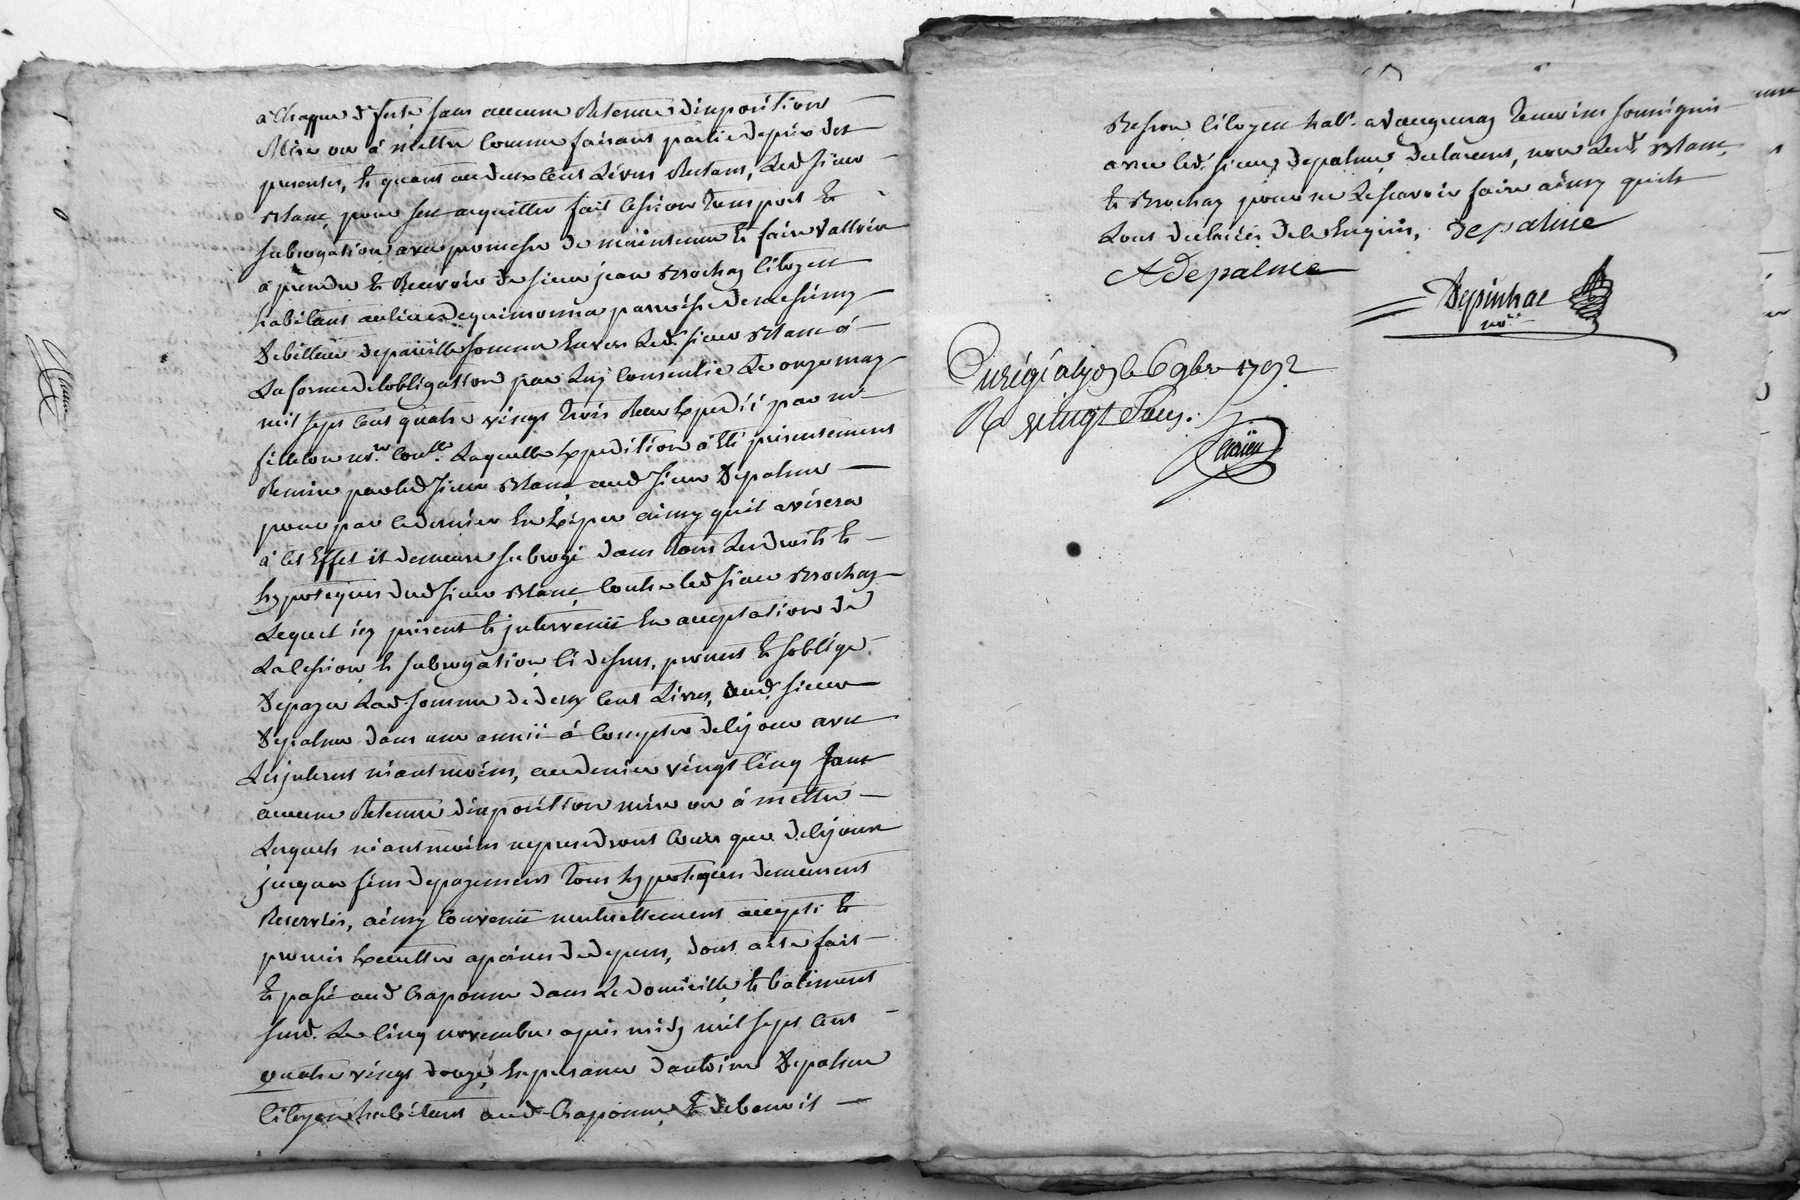 à chaque d. feste sans aucune Retenue d'inposition
Mise ou à mettre comme faisant partie du prix des
presentes, Et quant aux deux cent Livres Restans, Led sieur
Blanc, pour sen acquitter fait cession transport Et
subrogation avec promesse de maintenue Et faire valloir
à prendre Et Recevoir de sieur jean Brochay Citoyen
habitant au lieu de paroisse de
Debitteur de pareille somme Envers Led. sieur Blanc à
La forme de lobligation par Luy consentie Le onze may
mil sept cent quatre vingt trois Receu Expedié par me
not.re Laquelle Expedition à Eté presentement
Remise par led sieur Blanc aud sieur Depalme
pour par ce dernier En Exiger ainsy quil avisera
à cet Effet il demeure subrogé dans tous Les droits Et
hypoteques dud sieur Blanc, contre led sieur Brochay
Lequel icy présent Et intervenü En acceptation de
La cession Et subrogation ci dessus, promet Et soblige
Depayer Lad somme de deux cent Livres, aud. sieur
Depalme dans une année à compter de ce jour avec
Les interets néantmoins, au denier vingt cinq sans
aucune Retenue d'inposition mise ou à mettre
Lesquels néantmoins ne prendront cours que de ce jour
jusquau fins depayement tous hypoteques demeurent
Reservées, ainsy convenü mutuellement accepté Et
promis Executter apeines de depens, dont acte fait
Et passé aud Craponne dans Le domicille, Et batiment
susd. Le cinq novembre apres midy mil sept cent
quatre vingt douze, En presence d'antoine Depalme
Citoyen habitant aud Craponne, Et de benoit
Besson Citoyen hab.t a temoins soussignés
avec led. sieur Depalme declarent, non Led. Blanc,
Et Brochay pour ne Le scavoir faire ainsy quils
Lont declarés de ce Enquis, Depalme
A Depalme
Depinhac
no.re
Enrégé le 6 9bre 1792
R vingt sous.